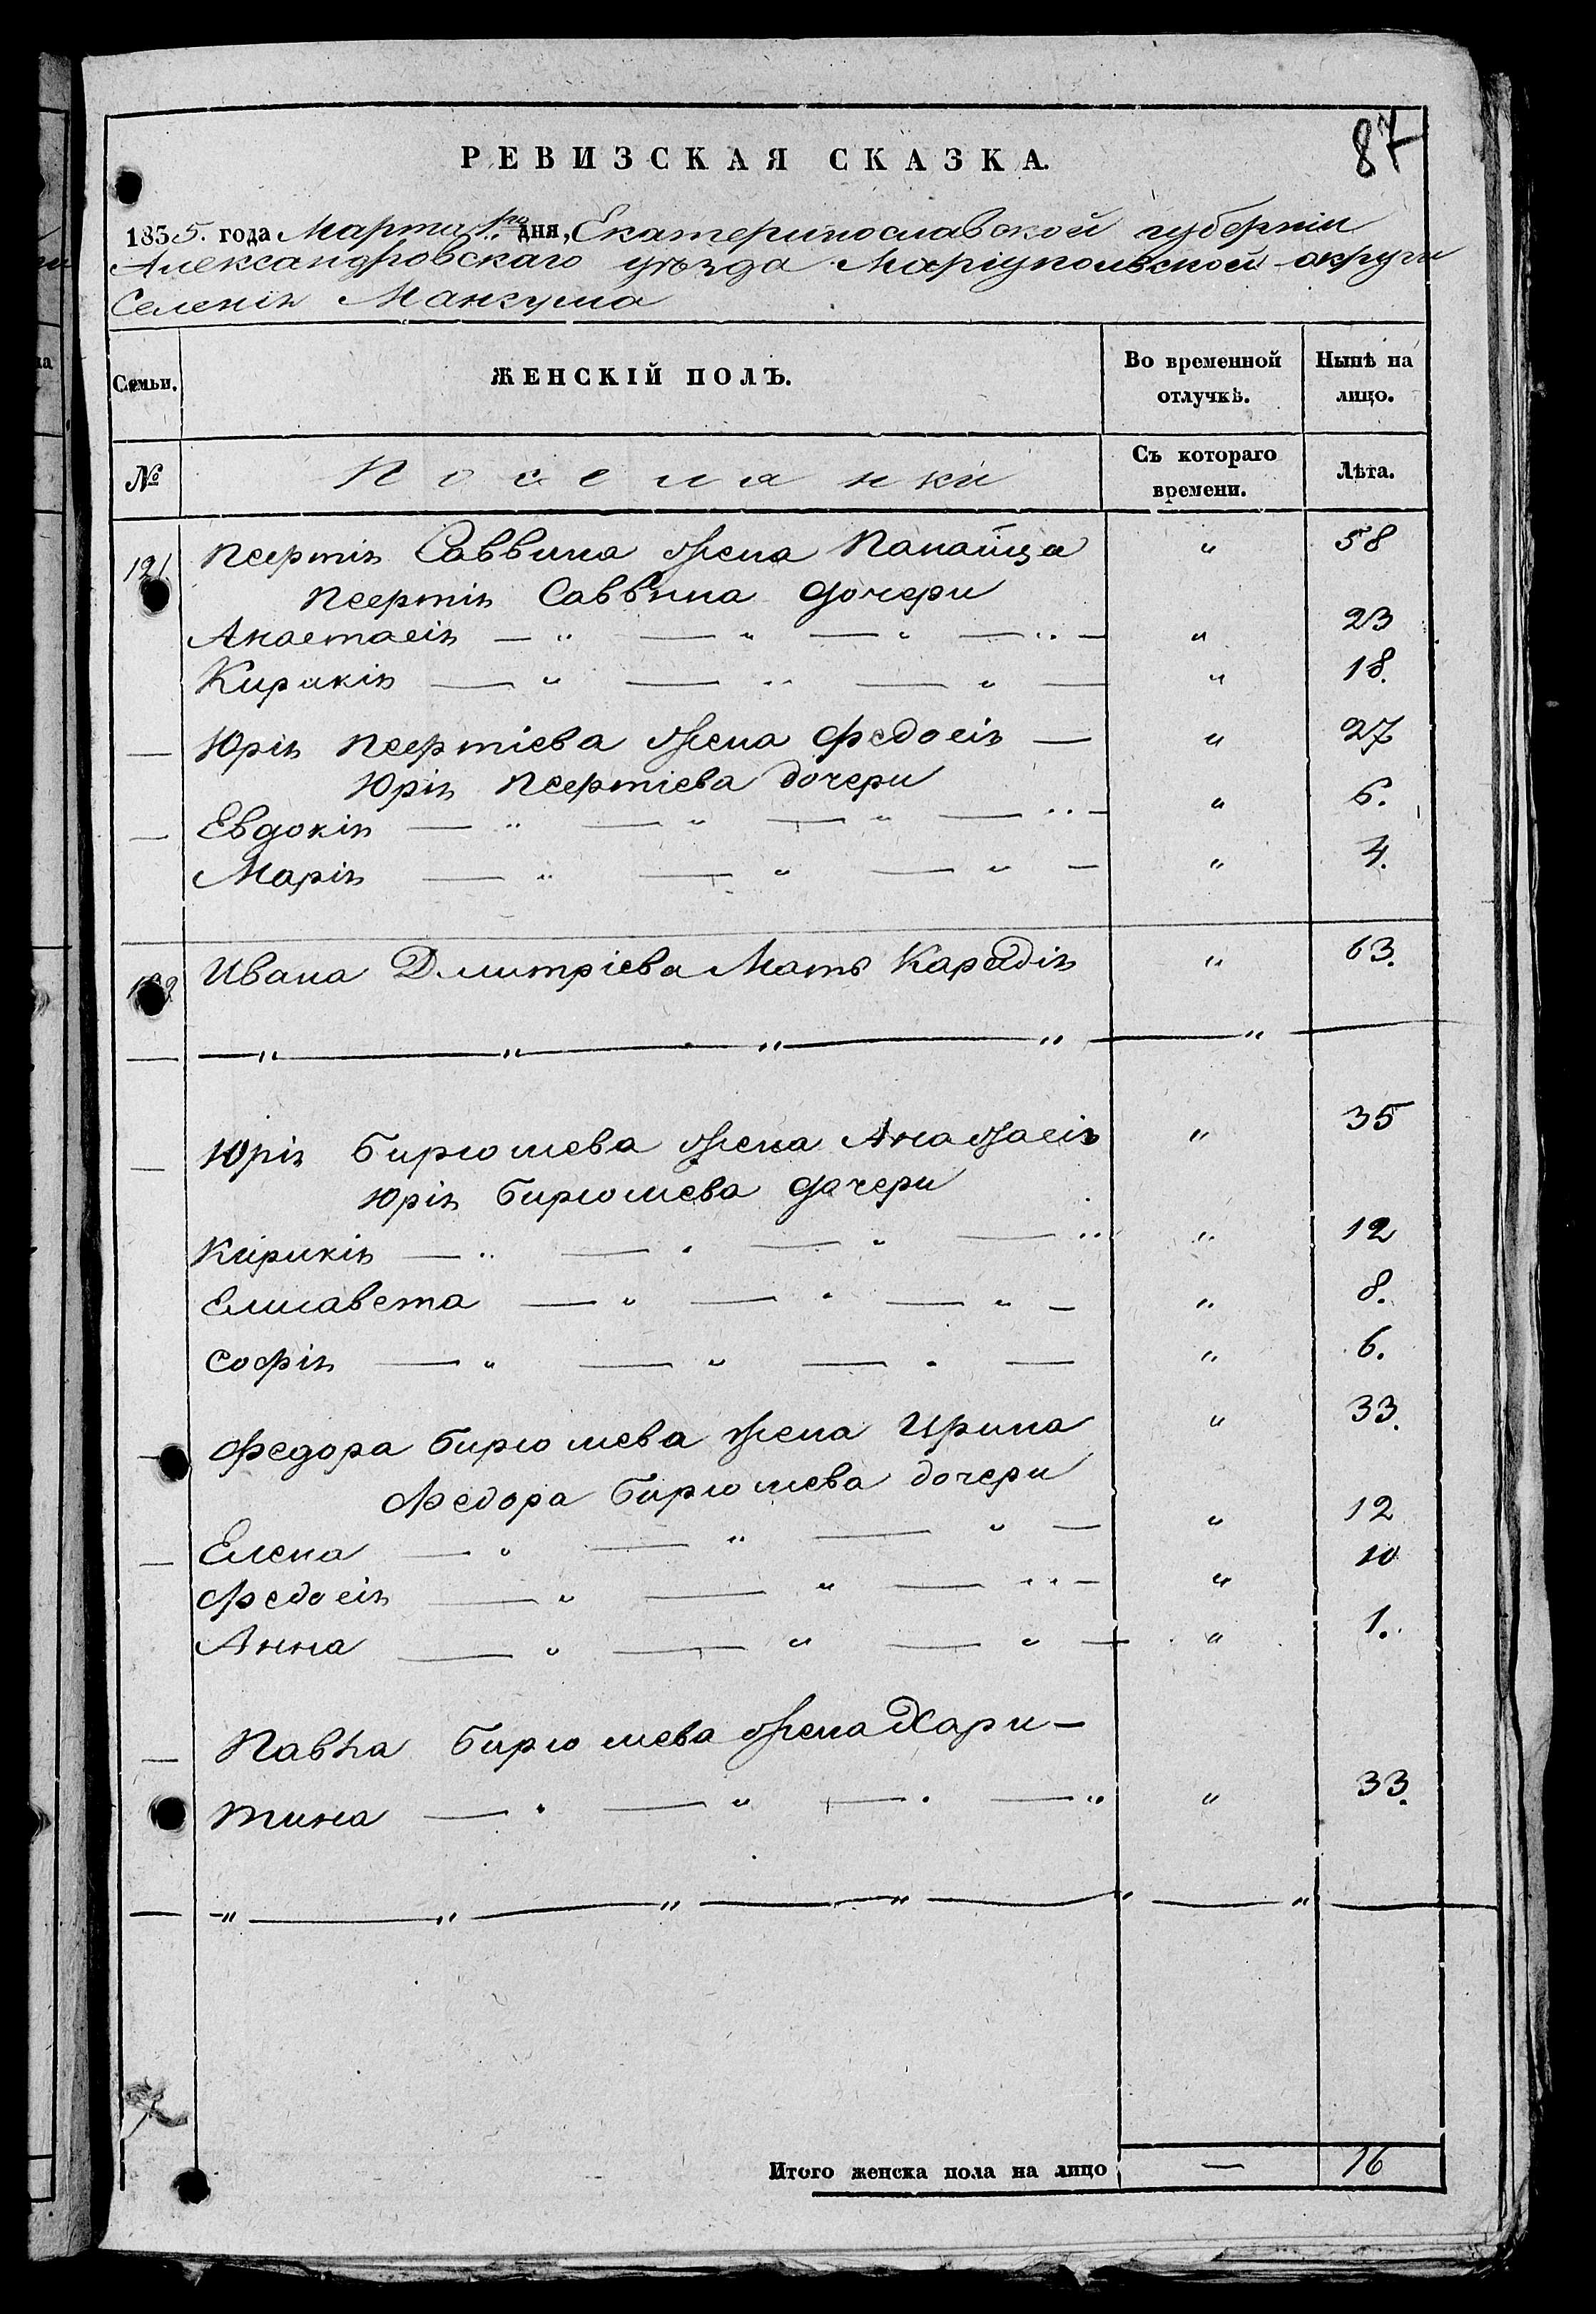 87
РЕВИЗСКАЯ СКАЗКА.
1855. года Марта 1го дня, Екатеринославской губерніи
Александровскаго уѣзда Маріупольской округи
Селенія Мангуша
Семьи. ЖЕНСКІЙ ПОЛЪ. Во временной отлучкѣ. Нынѣ на лицо.
№ Поселянки Съ котораго времени. Лѣта.
121 Псертія Саввина жена Панаица " 58
Псертія Саввина дочери
Анастасія — " — " — " — " — " 23
Кирикія — " — " — " — " 18.
— Юрія Псертіева жена Федосія — " 27
Юрія Псертіева дочери
— Евдокія — " — " — " — " — " 6.
Марія — " — " — " — " 4.
122 Ивана Дмитріева Мать Карадія " 63.
— — " — " — " — " — " —
— Юрія Бирюшева жена Анастасія " 35
Юрія Бирюшева дочери
Кирикія — " — " — " — " " 12
Елисавета — " — " — " — " 8.
Софія — " — " — " — " 6.
— Федора Бирюшева жена Ирина " 33.
Федора Бирюшева дочери
— Елена — " — " — " — " 12
Федосія — " — " — " — " 10
Анна — " — " — " — " 1.
— Павла Бирюшева жена Хари-
тина — " — " — " — " " 33.
— — " — " — " — " — " — " —
Итого женска пола на лицо — 16